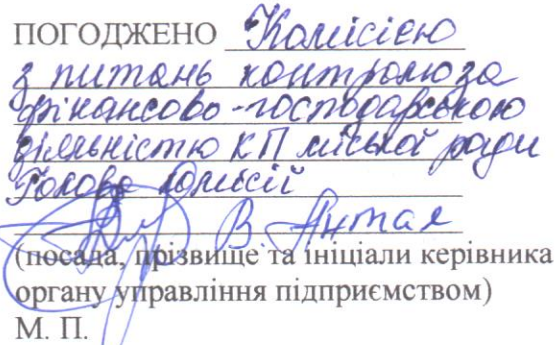 ПОГОДЖЕНО Комісією
з питань контролю за
фінансово-господарською
діяльністю КП міської ради
Голова комісії
В. Антал
(посада, прізвище та ініціали керівника
органу управління підприємством)
М. П.